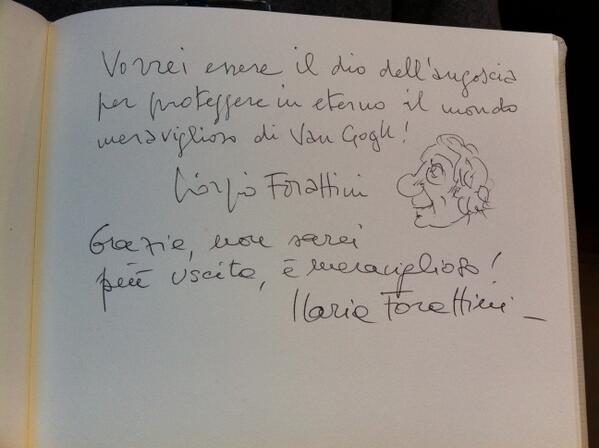 Vorrei essere il dio dell'angoscia
per proteggere in eterno il mondo
meraviglioso di Van Gogh!
Giorgio Forattini
Grazie, non sarei
più uscita, è meraviglioso!
Ilaria Forattini